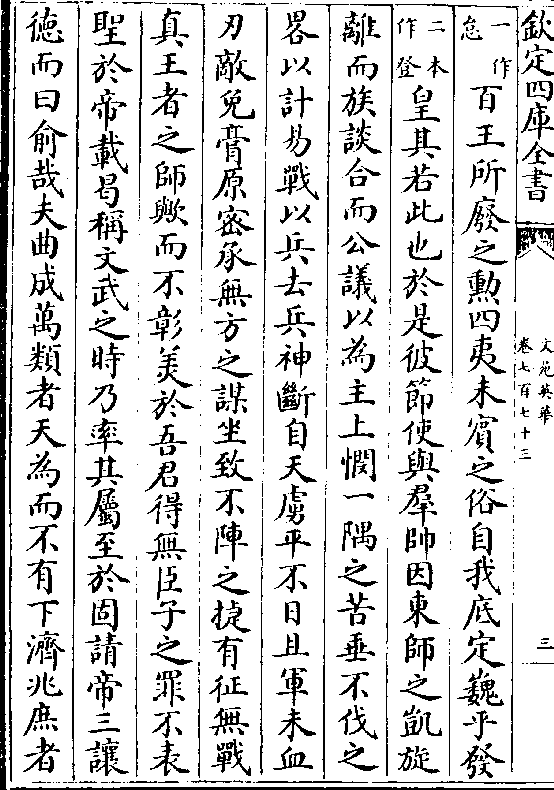 欽定四庫全書
文苑英華
卷七百七十三
三
一作怠百王所廢之勲四夷未賓之俗自我底定巍乎發
二本作登皇其若此也於是彼節使與羣帥因東師之凱旋
離而族談合而公議以為主上憫一隅之苦垂不伐之
畧以計易戰以兵去兵神斷自天虜平不日且軍未血
刃敵免膏原宻承無方之謀坐致不陣之捷有征無戰
真王者之師歟而不彰美於吾君得無臣子之罪不表
聖於帝載曷稱文武之時乃率其屬至於固請帝三讓
徳而曰俞哉夫曲成萬類者天為而不有下濟兆庶者